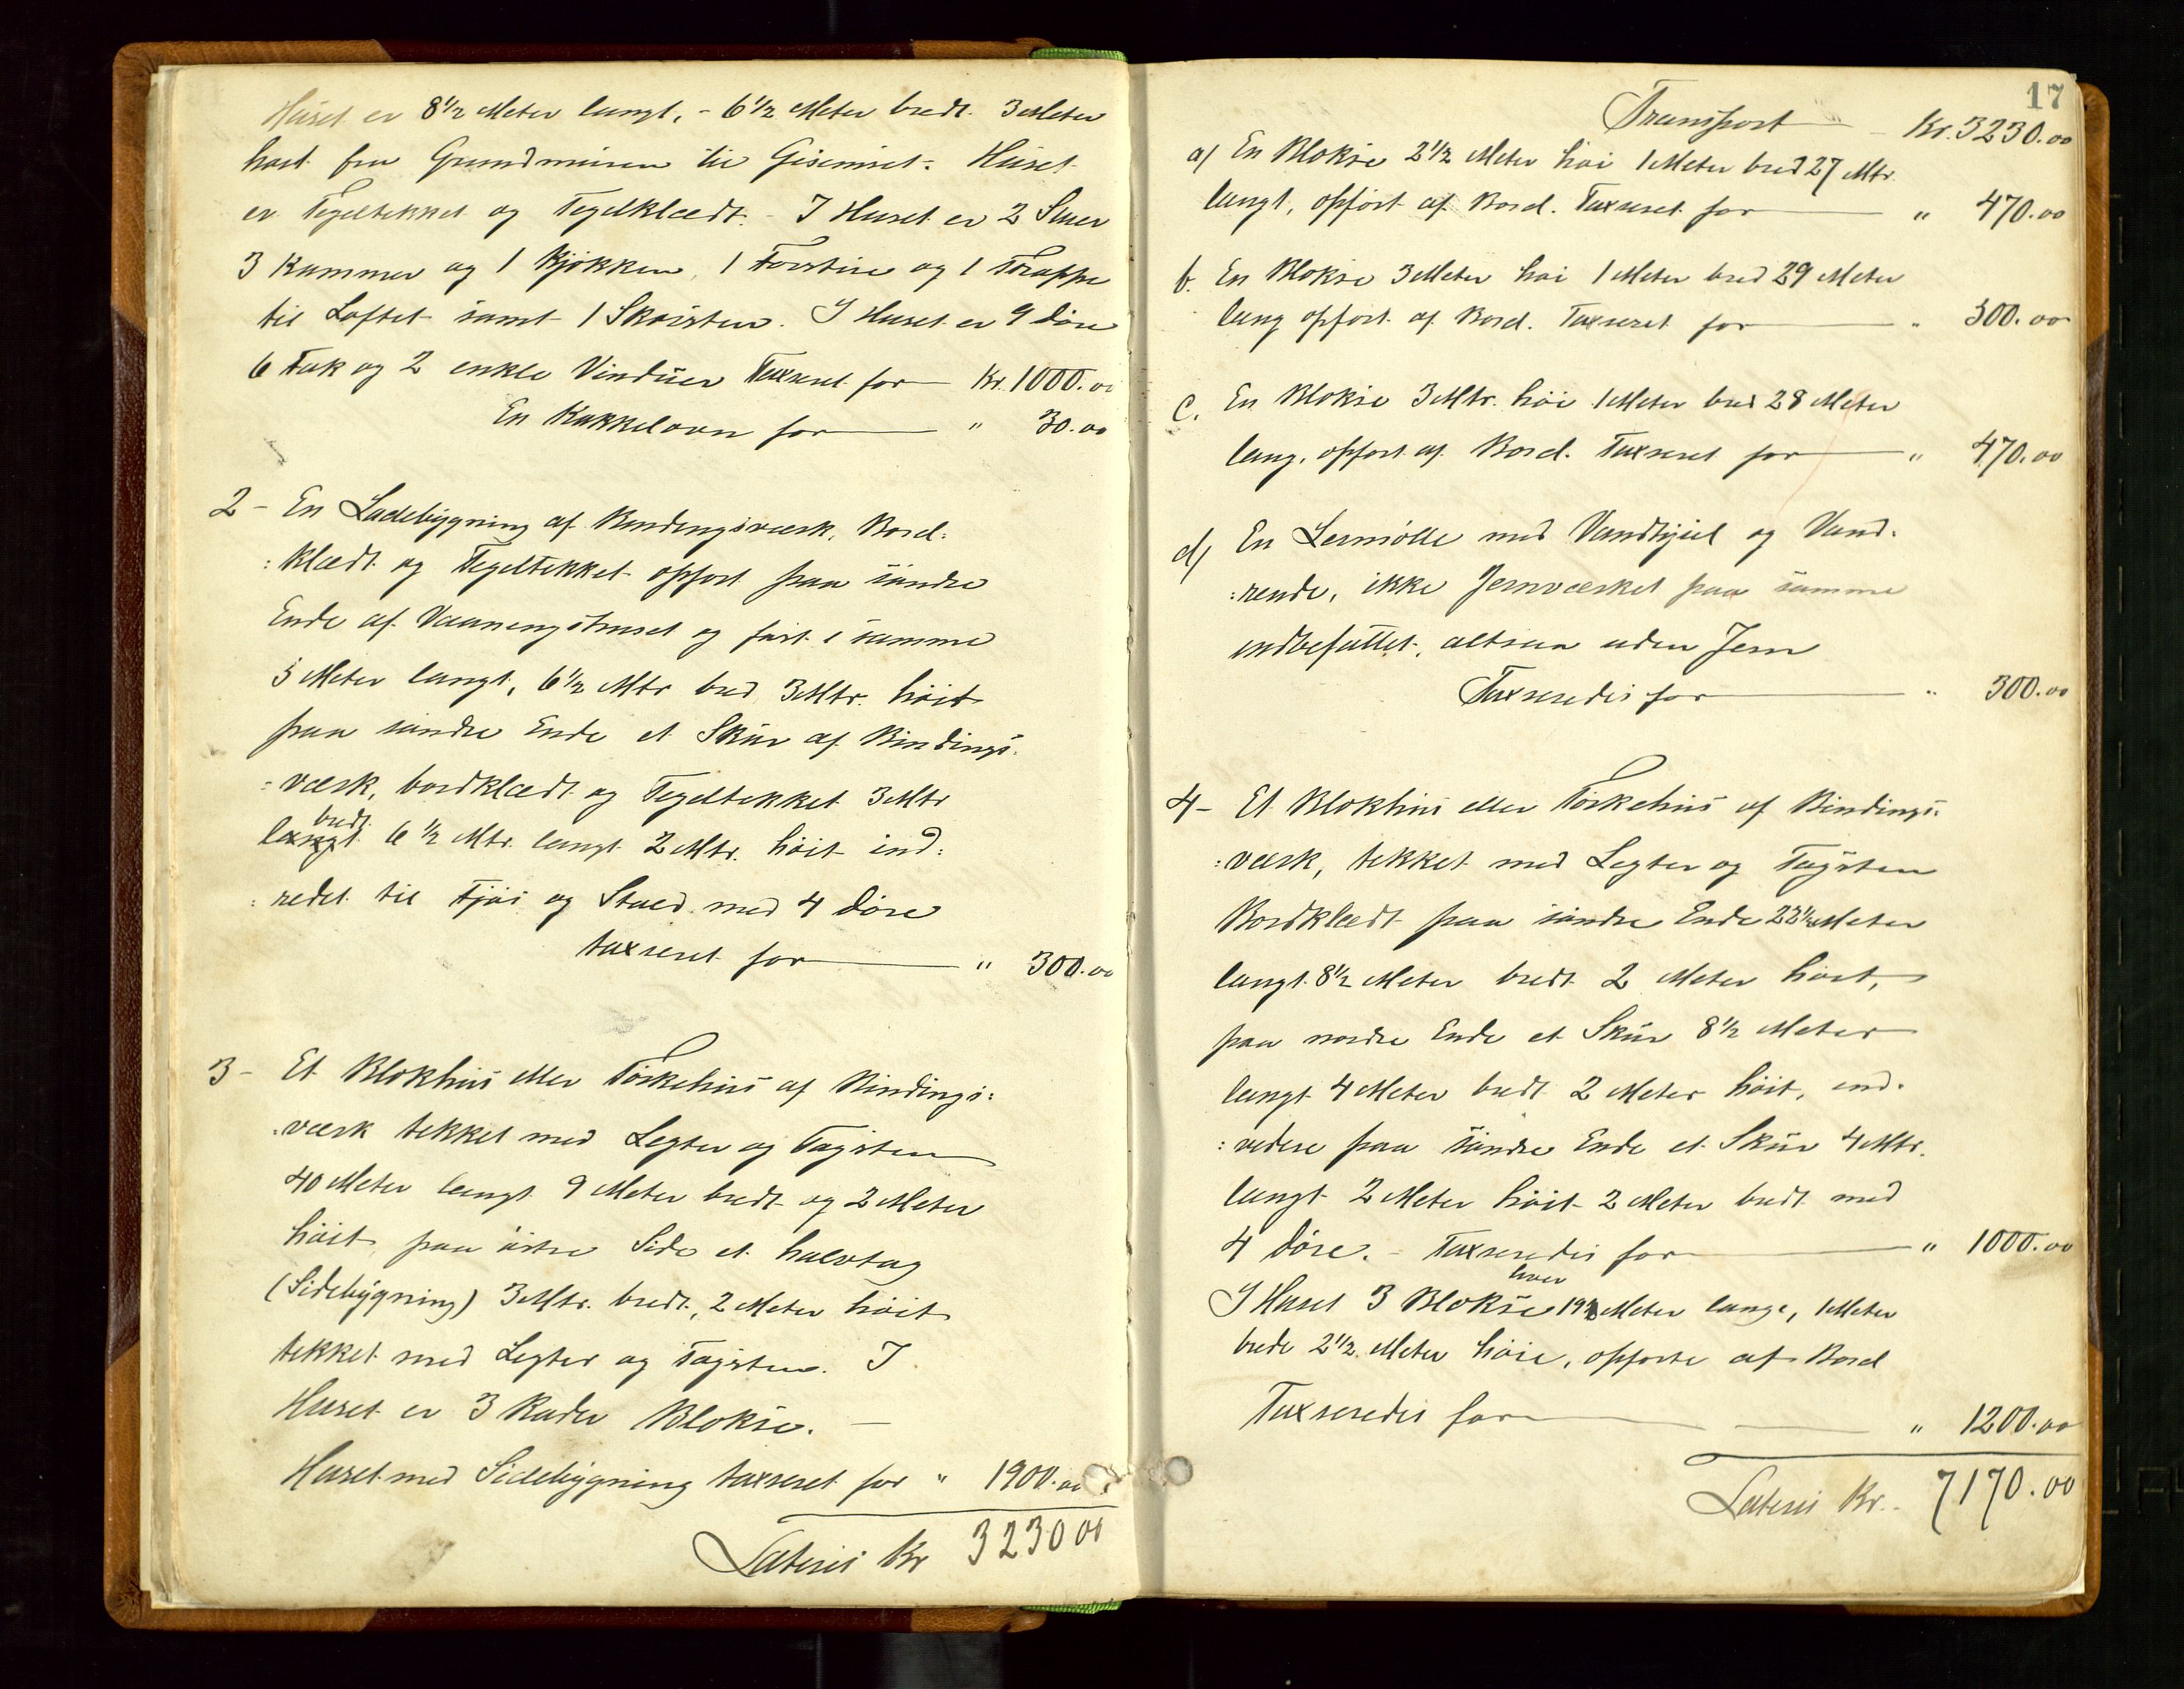 Huset er 8½ Meter langt, - 6½ Meter bredt. 3 Meter
høit fra Grundmuren til Gisemset. Huset
er Tegeltekket og Tegelklædt. - I Huset er 2 Stuer
3 Kammer og 1 Kjøkken, 1 Forstue og 1 Trappe
til Loftet samt 1 Skorsten. I Huset er 9 Døre
6 Fak og 2 enkle Vinduer Taxeret for Kr. 1000.00
En Kakkelovn for " 30.00
2 - En Ladebygning af Bindingsværk, Bord:
:klædt og Tegeltekket opført paa søndre
Ende af Vaaningshuset og fast i samme
5 Meter langt, 6½ Mtr bred 3 Mtr. høit
paa søndre Ende et Skur af Bindings:
:værk, bordklædt og Tegeltekket 3 Mtr
bredt
langt 6½ Mtr. langt 2 Mtr. høit ind:
:redet til Fjøs og Stald med 4 Døre
taxeret for " 300.00
3 - Et Blokhus eller Tørkehus af Bindings:
:værk tekket med Legter og Tagsten
40 Meter langt 9 Meter bredt og 2 Meter
høit, paa østre Side et halvtag
(Sidebygning) 3 Mtr. bredt, 2 Meter høit
tekket med Legter og Tagsten. I
Huset er 3 Rader Blokse. -
Huset med Sidebygning taxeret for " 1900.00
Lateris Kr 3230 00
17
Transport Kr. 3230.00
a) En Blokse 2½ Meter høi 1 Meter bred 27 Mtr.
langt, opført af Bord. Taxeret for " 470.00
b. En Blokse 3 Meter høi 1 Meter bred 29 Meter
lang opført af Bord. Taxeret for " 300.00
c. En Blokse 3 Mtr. høi 1 Meter bred 28 Meter
lang, opført af Bord. Taxeret for " 470.00
d) En Lermølle med Vandhjul og Vand:
:rende, ikke Jernværket paa samme
indbefattet, altsaa uden Jern
Taxeredes for " 300.00
4 - Et Blokhus eller Tørkehus af Bindings:
:værk, tekket med Legter og Tagsten
Bordklædt paa søndre Ende 22½ Meter
langt 8½ Meter bredt 2 Meter høit,
paa nordre Ende et Skur 8½ Meter
langt 4 Meter bredt 2 Meter høit, end:
:videre paa søndre Ende et Skur 4 Mtr.
langt 2 Meter høit 2 Meter bredt med
4 Døre. - Taxeredes for " 1000.00
hver
I Huset 3 Blokse 19½ Meter lange, 1 Meter
brede 2½ Meter høie, opførte af Bord
Taxeredes for " 1200.00
Lateris Kr. 7170.00